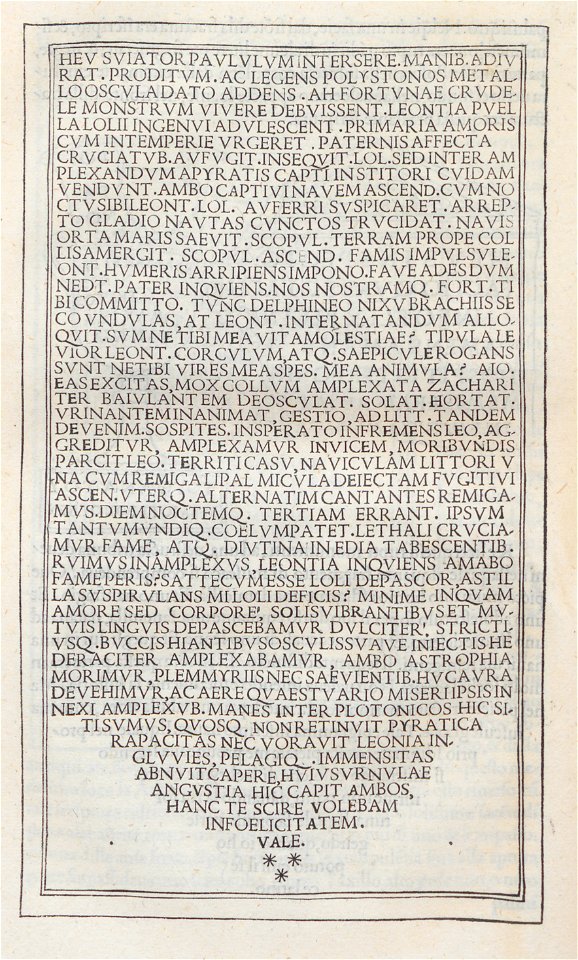 HEVS VIATOR PAVLVLVM INTERSERE. MANIB. ADIV
RAT. PRODITVM. AC LEGENS POLYSTONOS METAL-
LO OSCVLA DATO ADDENS. AH FORTVNAE CRVDE-
LE MONSTRVM VIVERE DEBVISSENT. LEONTIA PVEL
LA LOLII INGENVI ADVLESCENT. PRIMARIA AMORIS
CVM INTEMPERIE VRGERET. PATERNIS AFFECTA
CRVCIATVB. AVFVGIT. INSEQVIT. LOL. SED INTER AM
PLEXANDVM A PYRATIS CAPTI INSTITORI CVIDAM
VENDVNT. AMBO CAPTIVI NAVEM ASCEND. CVM NO
CTV SIBI LEONT. LOL. AVFERRI SVSPICARET. ARREP-
TO GLADIO NAVTAS CVNCTOS TRVCIDAT. NAVIS
ORTA MARIS SAEVIT. SCOPVL. TERRAM PROPE COL
LISA MERGIT. SCOPVL. ASCEND. FAMIS IMPVLSV LE-
ONT. HVMERIS ARRIPIENS IMPONO. FAVE ADES DVM
NEDT. PATER INQVIENS. NOS NOSTRAMQ. FORT. TI
BI COMMITTO. TVNC DELPHINEO NIXV BRACHIIS SE
CO VNDVLAS, AT LEONT. INTERNATANDVM ALLO-
QVIT. SVM NE TIBI MEA VITA MOLESTIAE? TIPVLA LE
VIOR LEONT. CORCVLVM, ATQ. SAEPICVLE ROGANS
SVNT NE TIBI VIRES MEA SPES. MEA ANIMVLA? AIO.
EAS EXCITAS, MOX COLLVM AMPLEXATA ZACHARI
TER BAIVLANTEM DEOSCVLAT. SOLAT. HORTAT.
VRINANTEM INANIMAT, GESTIO, AD LITT. TANDEM
DEVENIM. SOSPITES. INSPERATO INFREMENS LEO, AG-
GREDITVR, AMPLEXAMVR INVICEM, MORIBVNDIS
PARCIT LEO. TERRITI CASV, NAVICVLAM LITTORI V
NA CVM REMIGALI PALMICVLA DEIECTAM FVGITIVI
ASCEN. VTERQ. ALTERNATIM CANTANTES REMIGA-
MVS. DIEM NOCTEMQ. TERTIAM ERRANT. IPSVM
TANTVM VNDIQ. COELVM PATET. LETHALI CRVCIA-
MVR FAME ATQ. DIVTINA INEDIA TABESCENTIB.
RVIMVS IN AMPLEXVS, LEONTIA INQVIENS AMABO
FAME PERIS? SAT TECVM ESSE LOLI DEPASCOR, AST IL
LA SVSPIRVLANS MI LOLI DEFICIS? MINIME INQVAM
AMORE SED CORPORE, SOLIS VIBRANTIBVS ET MV-
TVIS LINGVIS DEPASCEBAMVR DVLCITER, STRICTI-
VSQ. BVCCIS HIANTIBVS OSCVLIS SVAVE INIECTIS HE
DERACITER AMPLEXABAMVR, AMBO ASTROPHIA
MORIMVR, PLEMMYRIIS NEC SAEVIENTIB. HVC AVRA
DEVEHIMVR, AC AERE QVAESTVARIO MISERI IPSIS IN
NEXI AMPLEXVB. MANES INTER PLOTONICOS HIC SI-
TI SVMVS, QVOSQ. NON RETINVIT PYRATICA
RAPACITAS NEC VORAVIT LEONIA IN-
GLVVIES, PELAGIQ. IMMENSITAS
ABNVIT CAPERE, HVIVS VRNVLAE
ANGVSTIA HIC CAPIT AMBOS,
HANC TE SCIRE VOLEBAM
INFOELICITATEM.
VALE.